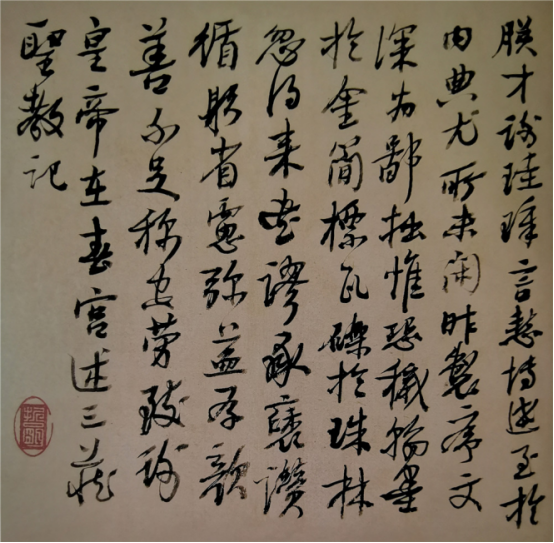 朕才謝珪璋言慙博達至於
内典尤所未閑昨製序文
深為鄙拙惟恐穢翰墨
於金簡標瓦礫於珠林
忽得来書謬承褒讚
循躬省慮弥益厚顔
善不足称空勞致謝
皇帝在春宮述三藏
聖教記